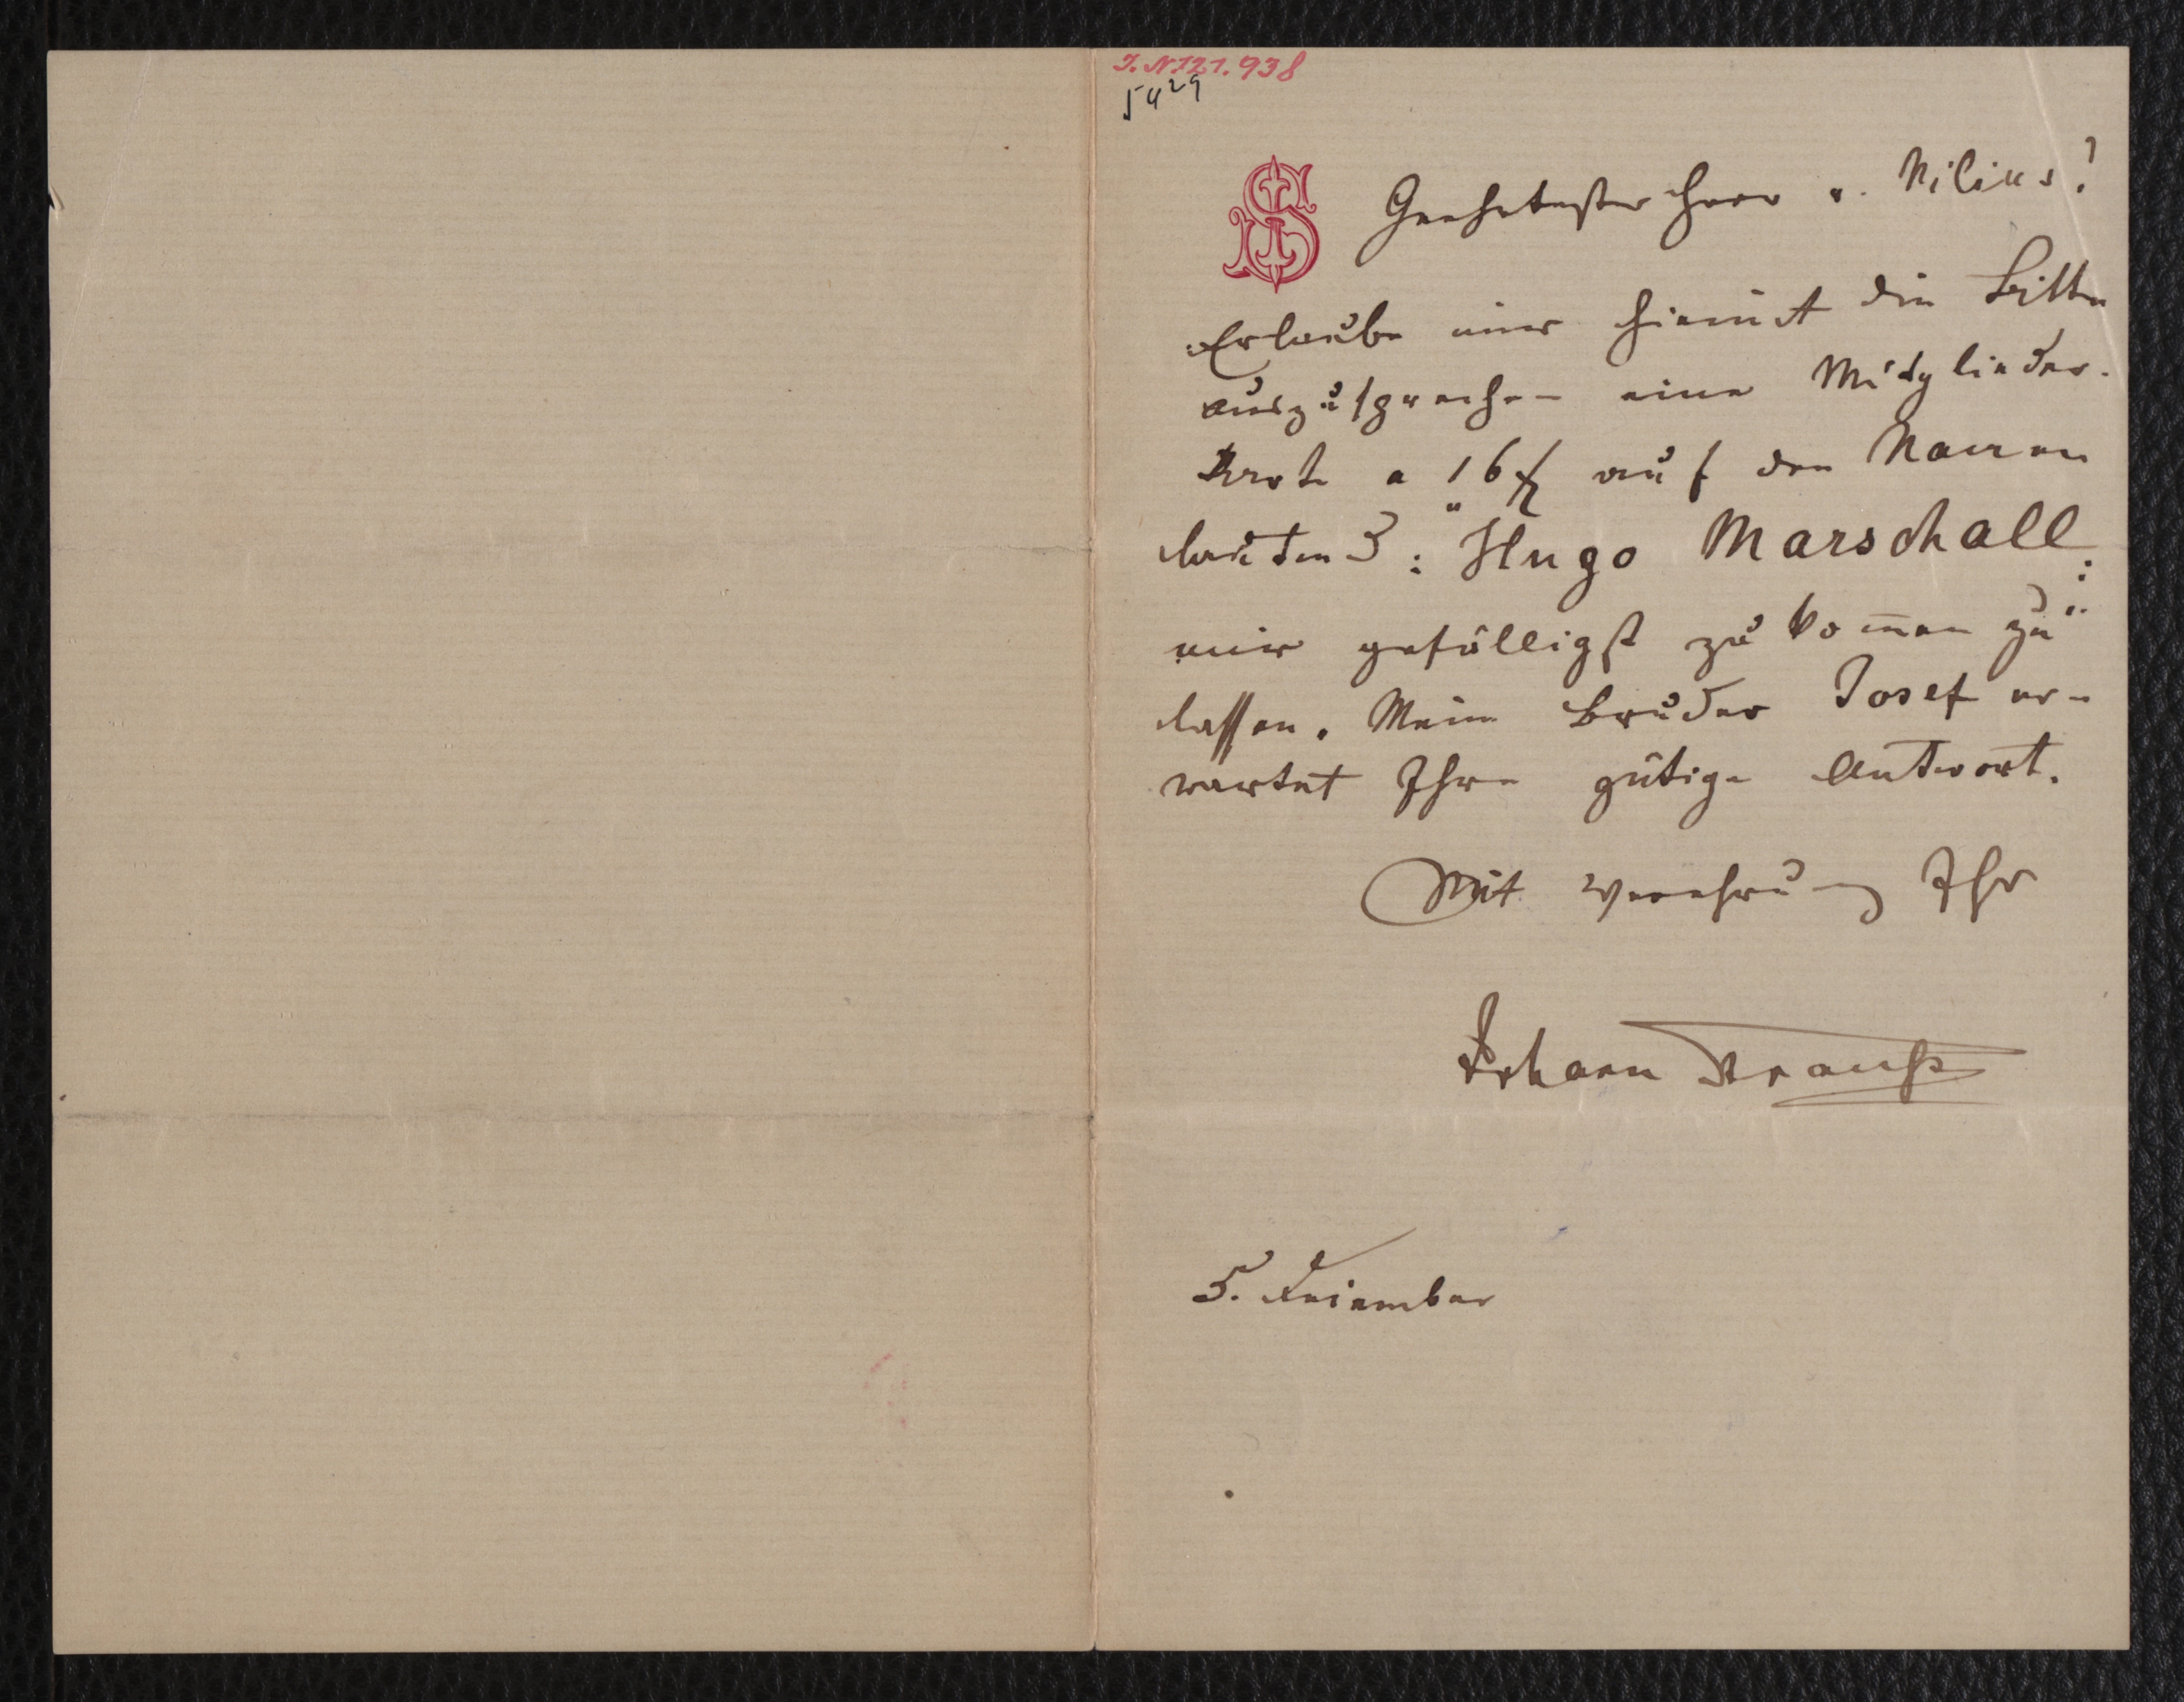 I. N. 121.938
5429
JS
Geehrtester Herr v. Nilius!
Erlaube mir hiemit die Bitte
auszusprechen eine Mitglieder-
Karte a 16 f auf den Namen
lautend: Hugo Marschall
mir gefälligst zukom̄en zu
lassen. Mein Bruder Josef er-
wartet Ihre gütige Antwort.
Mit Verehrung Ihr
Johann Strauß
5.